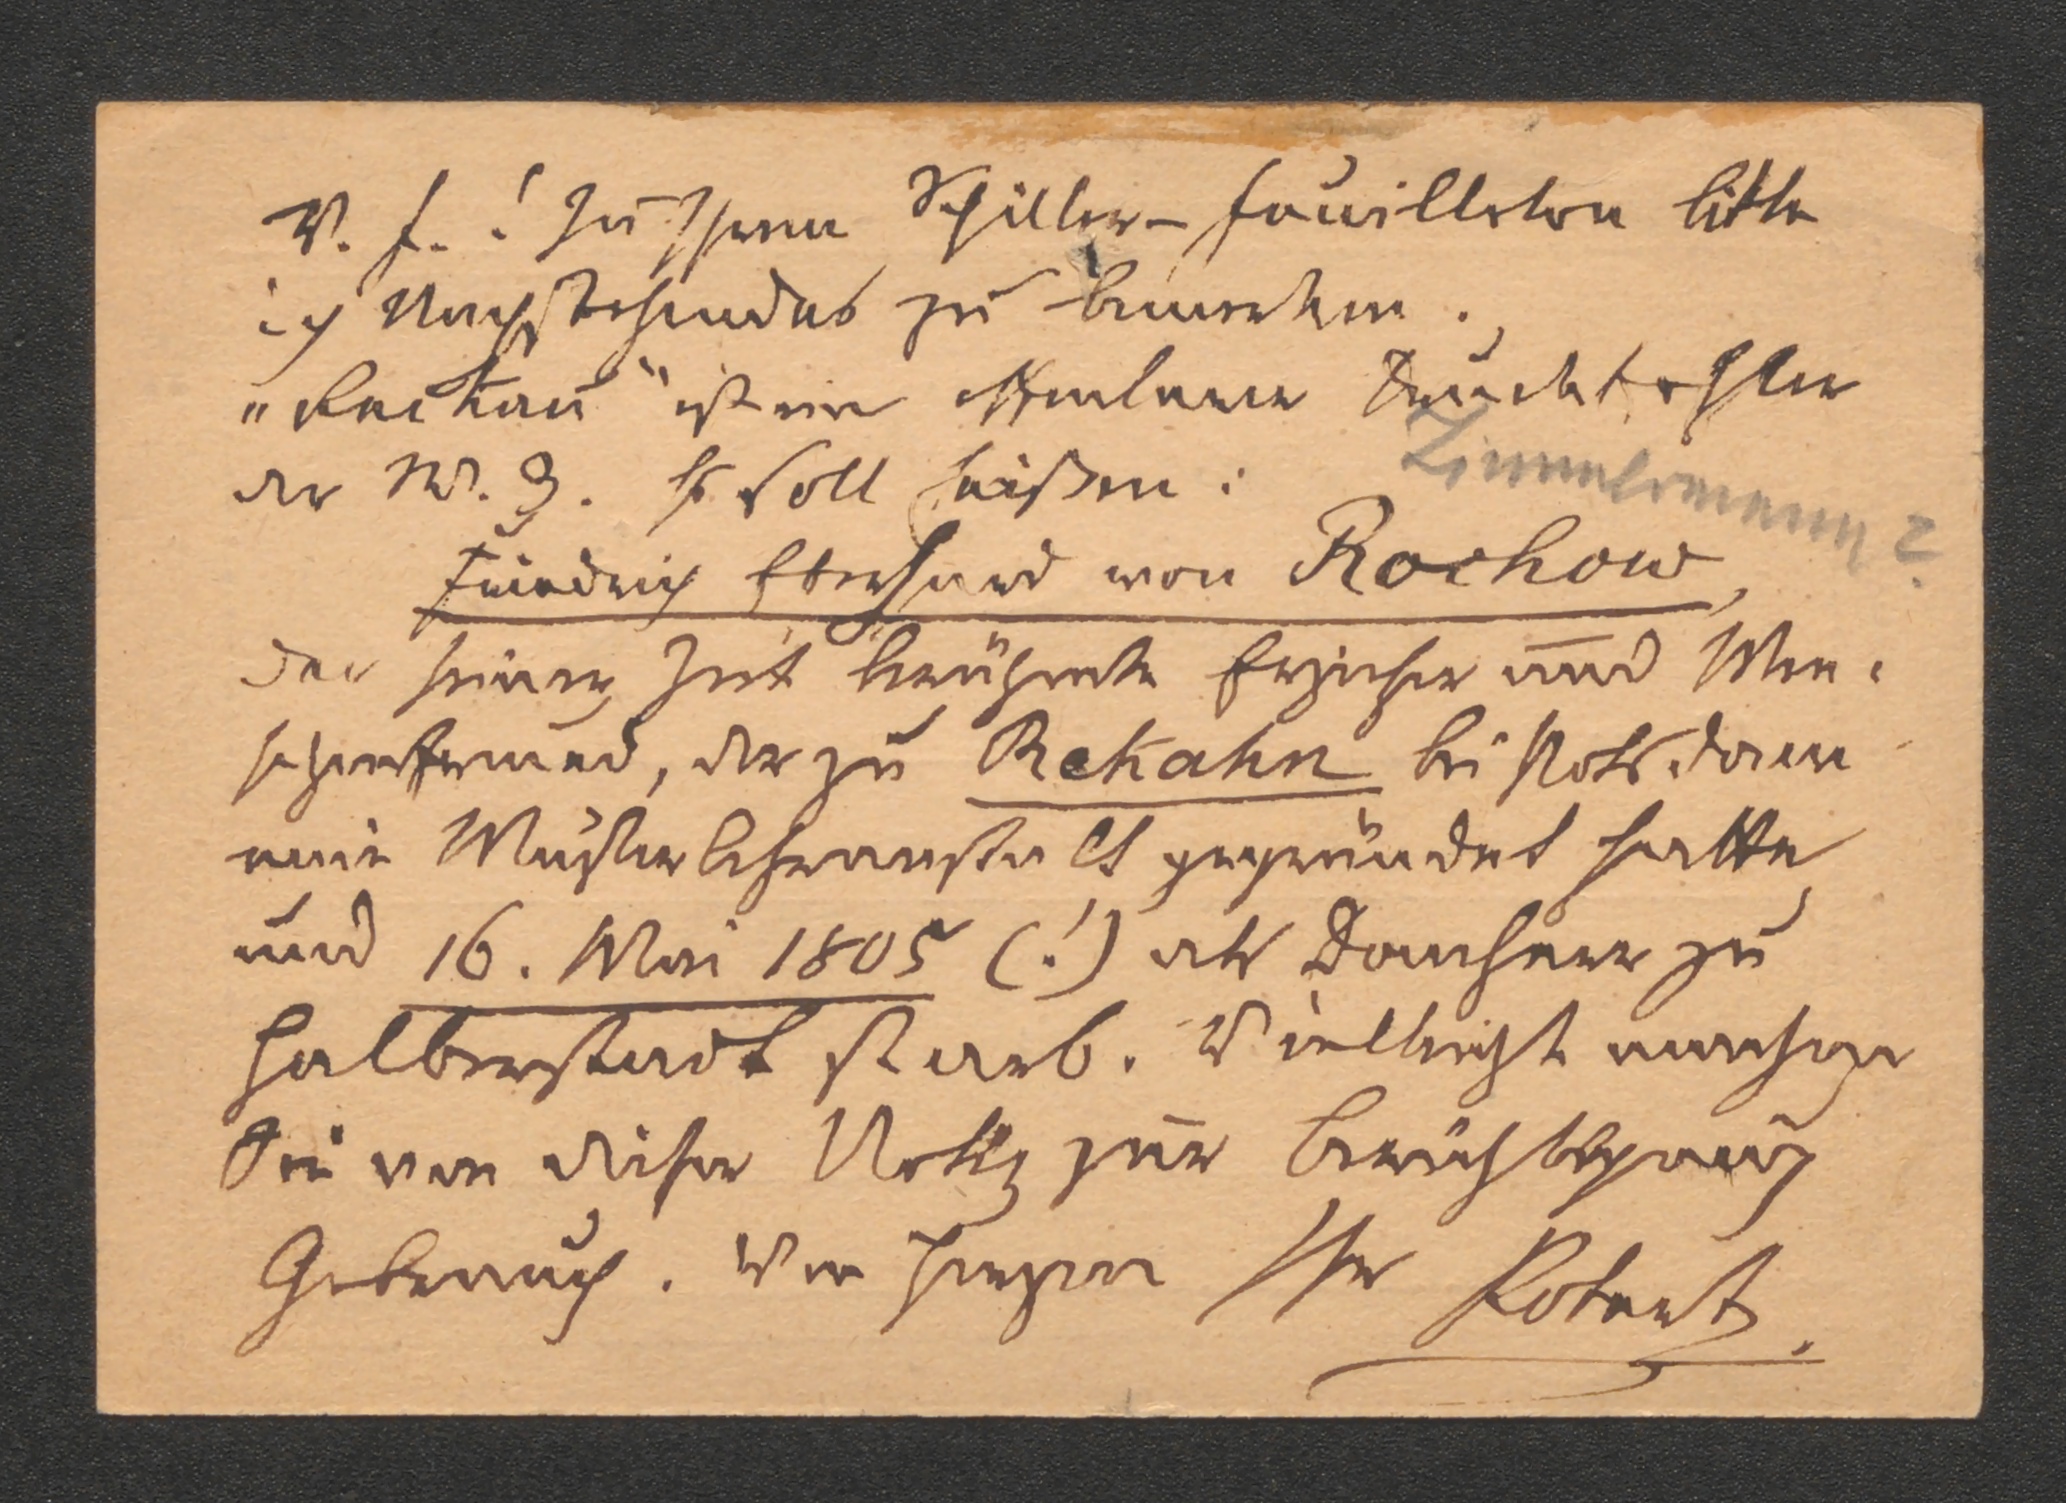 V. F.! Zu Ihrem Schiller-Feuilleton bitte
ich Nachstehendes zu bemerken.
„Reckau" ist ein offenbarer Druckfehler
der W. Z. Es soll heißen:
Zimmermann?
Friedrich Eberhard von Rochow,
der seiner Zeit berühmte Erzieher und Men-
schenfreund, der zu Rekahn bei Potsdam
eine Musterlehranstalt gegründet hatte
und 16. Mai 1805 (!) als Domherr zu
Halberstadt starb. Vielleicht machen
Sie von dieser Notiz zur Berichtigung
Gebrauch. Von Herzen Ihr